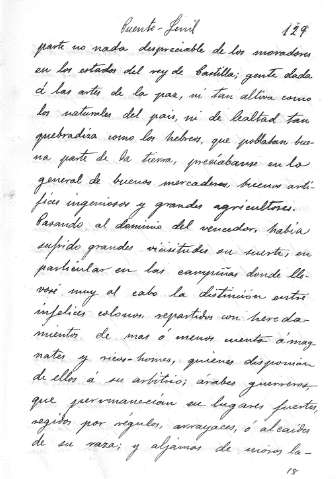 Puente-Jenil 129
parte no nada despreciable de los moradores
en los estados del rey de Castilla; gente dada
á las artes de la paz, ni tan altiva como
los naturales del pais, ni de lealtad tan
quebradiza como los hebreos, que poblaban bue-
na parte de la tierra, preciábanse en lo
general de buenos mercaderes, buenos artí-
fices ingeniosos y grandes agricultores.
Pasando al dominio del vencedor, había
sufrido grandes vicisitudes su suerte, en
particular en las campiñas donde lle-
vose muy al cabo la distincion entre
infelices colonos, repartidos con hereda-
mientos de mas ó menos cuenta á mag-
nates y ricos-homes, quienes disponian
de ellos á su arbitrio; árabes guerreros,
que permanecían en lugares fuertes,
regidos por régulos, arrayaces, ó alcaides
de su raza; y aljamas de moros la-
18